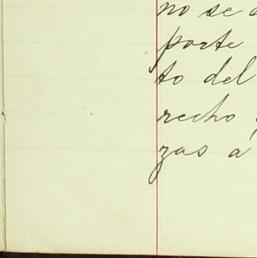 no se
porte
to del
recho
zas a